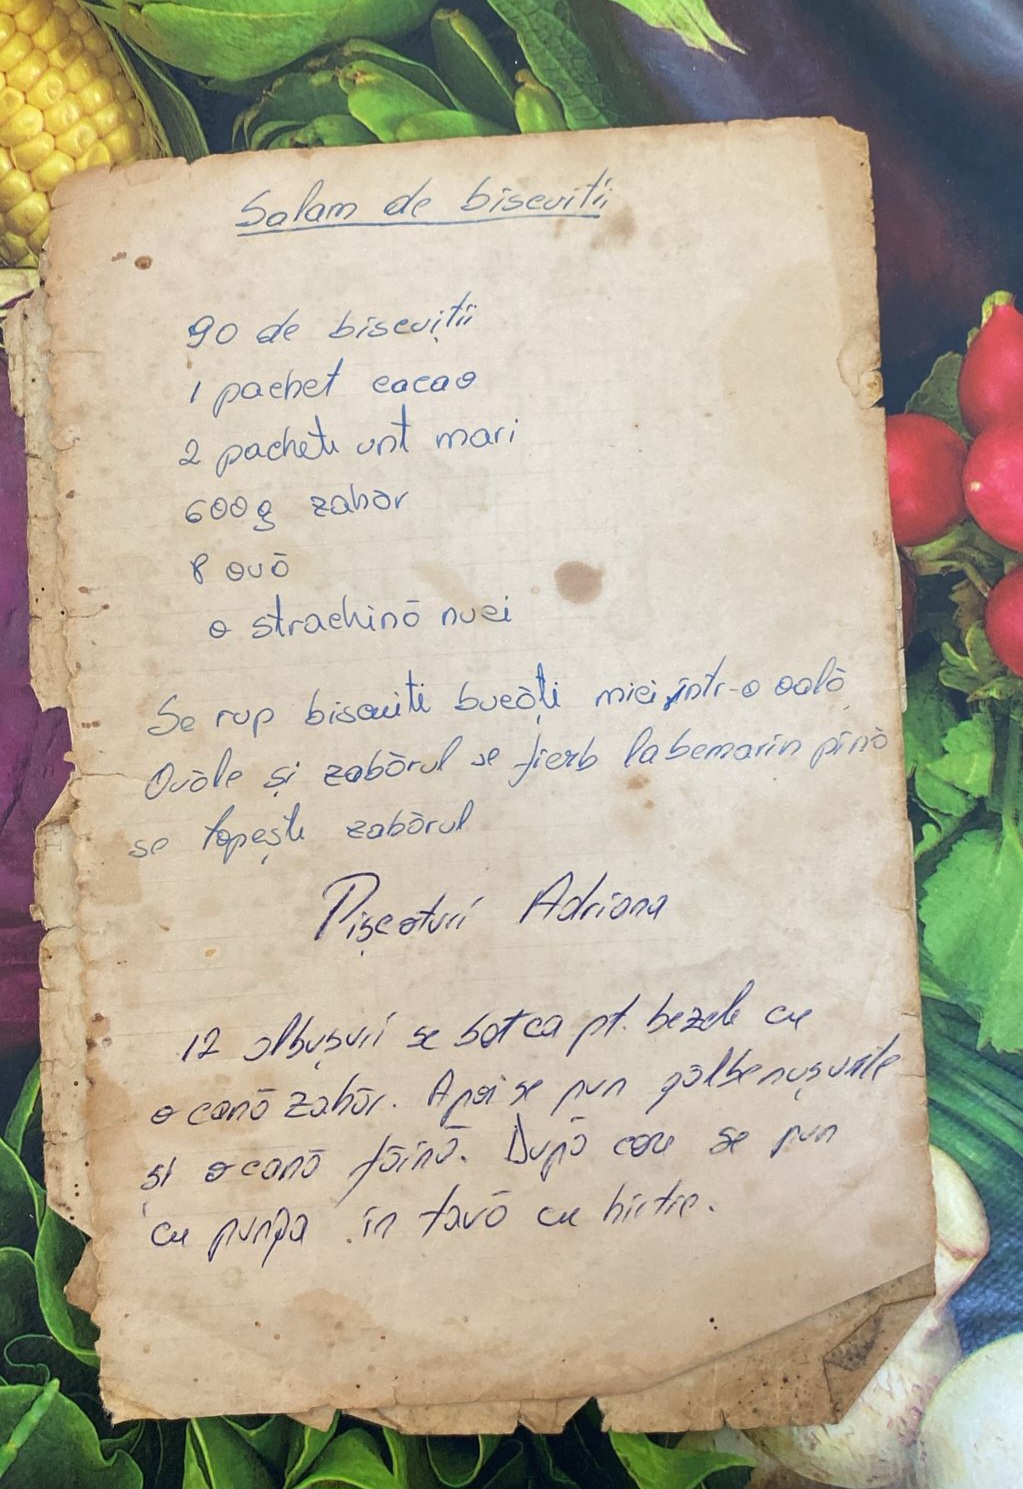 Salam de biscuiti
90 de biscuiții
1 pachet cacao
2 pachete unt mari
600g zahār
8 ouō
o strachinō nuci
Se rup biscuiti bucăți mici într-o oală
Ouăle și zahărul se fierb la bemarin pînă
se topește zahărul
Pișcoturi Adriana
12 albușuri se bat ca pt. bezele cu
o cană zahăr. Apoi se pun gălbenușurile
și o cană făină. După care se pun
cu punga în tavă cu hîrtie.